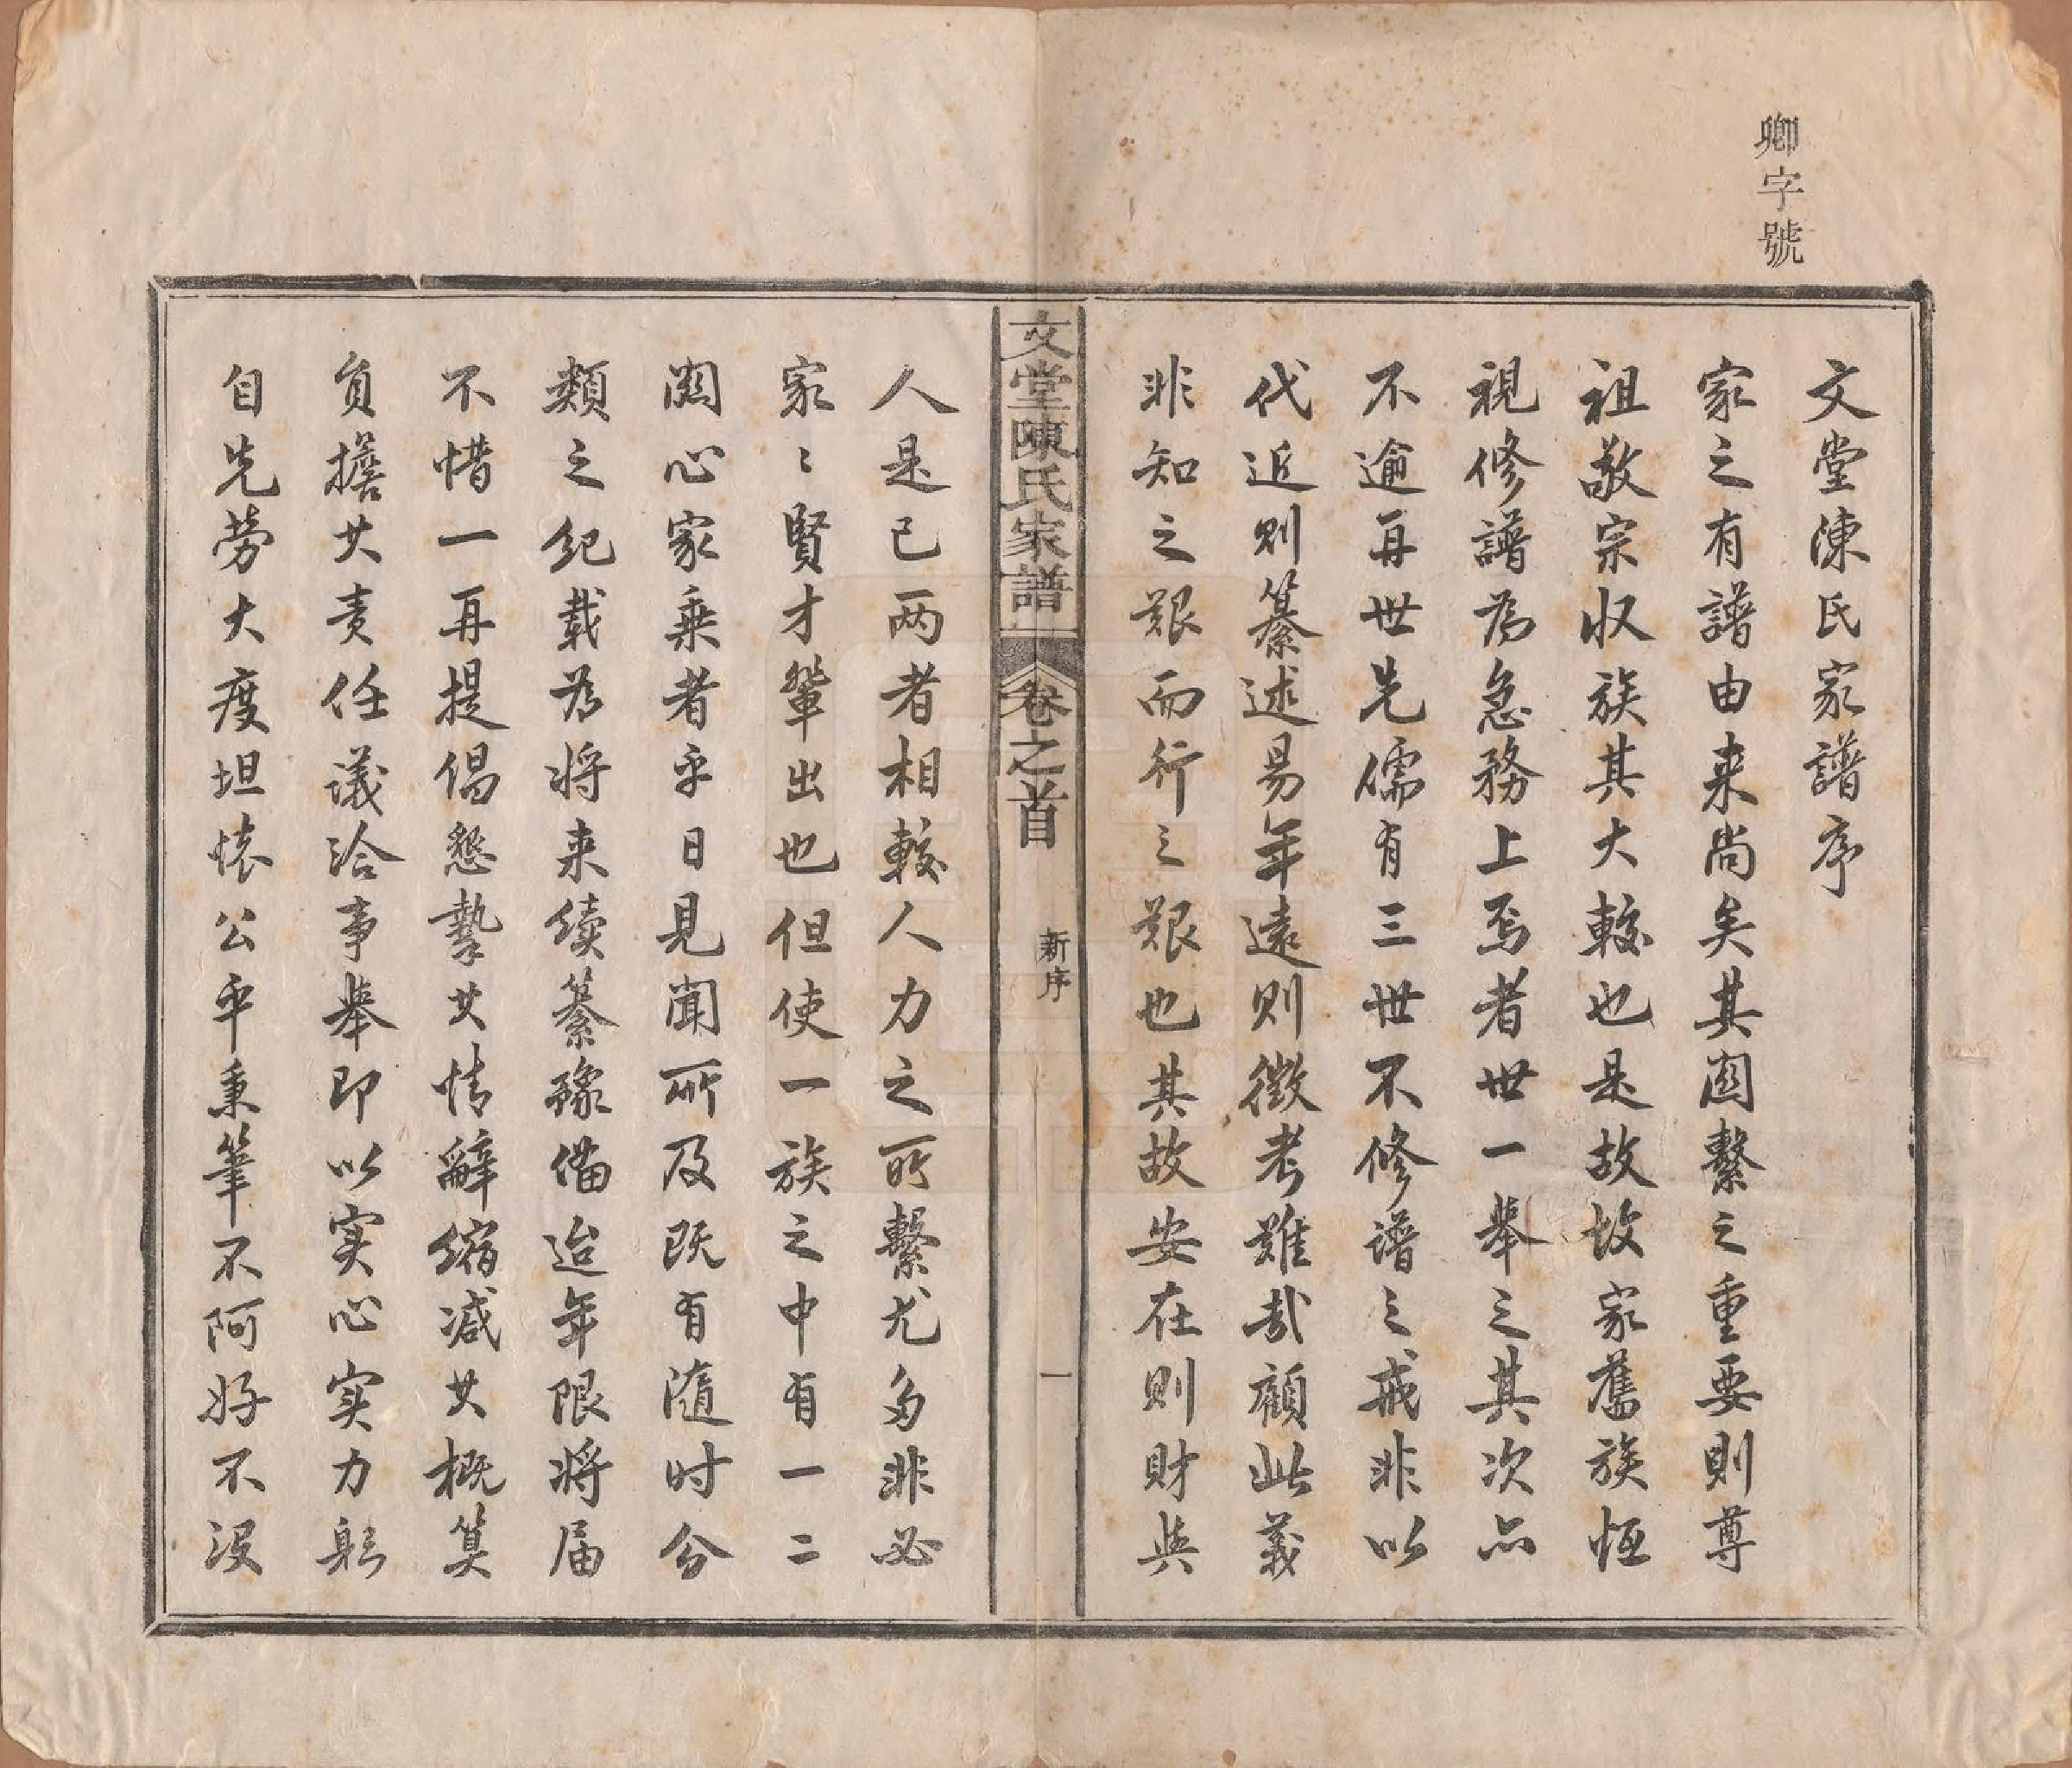 卿字號
文堂陳氏家譜序
家之有譜由来尚矣其関繫之重要則尊
祖敬宗收族其大較也是故故家舊族恒
視修譜為急務上焉者世一舉之其次亦
不逾再世先儒有三世不修譜之戒非以
代近則纂述易年遠則徵考難哉顧此義
非知之艱而行之艱也其故安在則財與
文堂陳氏家譜
卷之首
新序
一
人是已两者相較人力之所繫尤多非必
家〻賢才輩出也但使一族之中有一二
関心家乘者乎日見聞所及既有隨时分
類之紀載为将来續纂豫備迨年限将届
不惜一再提倡懇摯其情辭縮减其概算
負擔其责任議洽事舉即以实心实力躬
自先劳大度坦懷公平秉筆不阿好不没